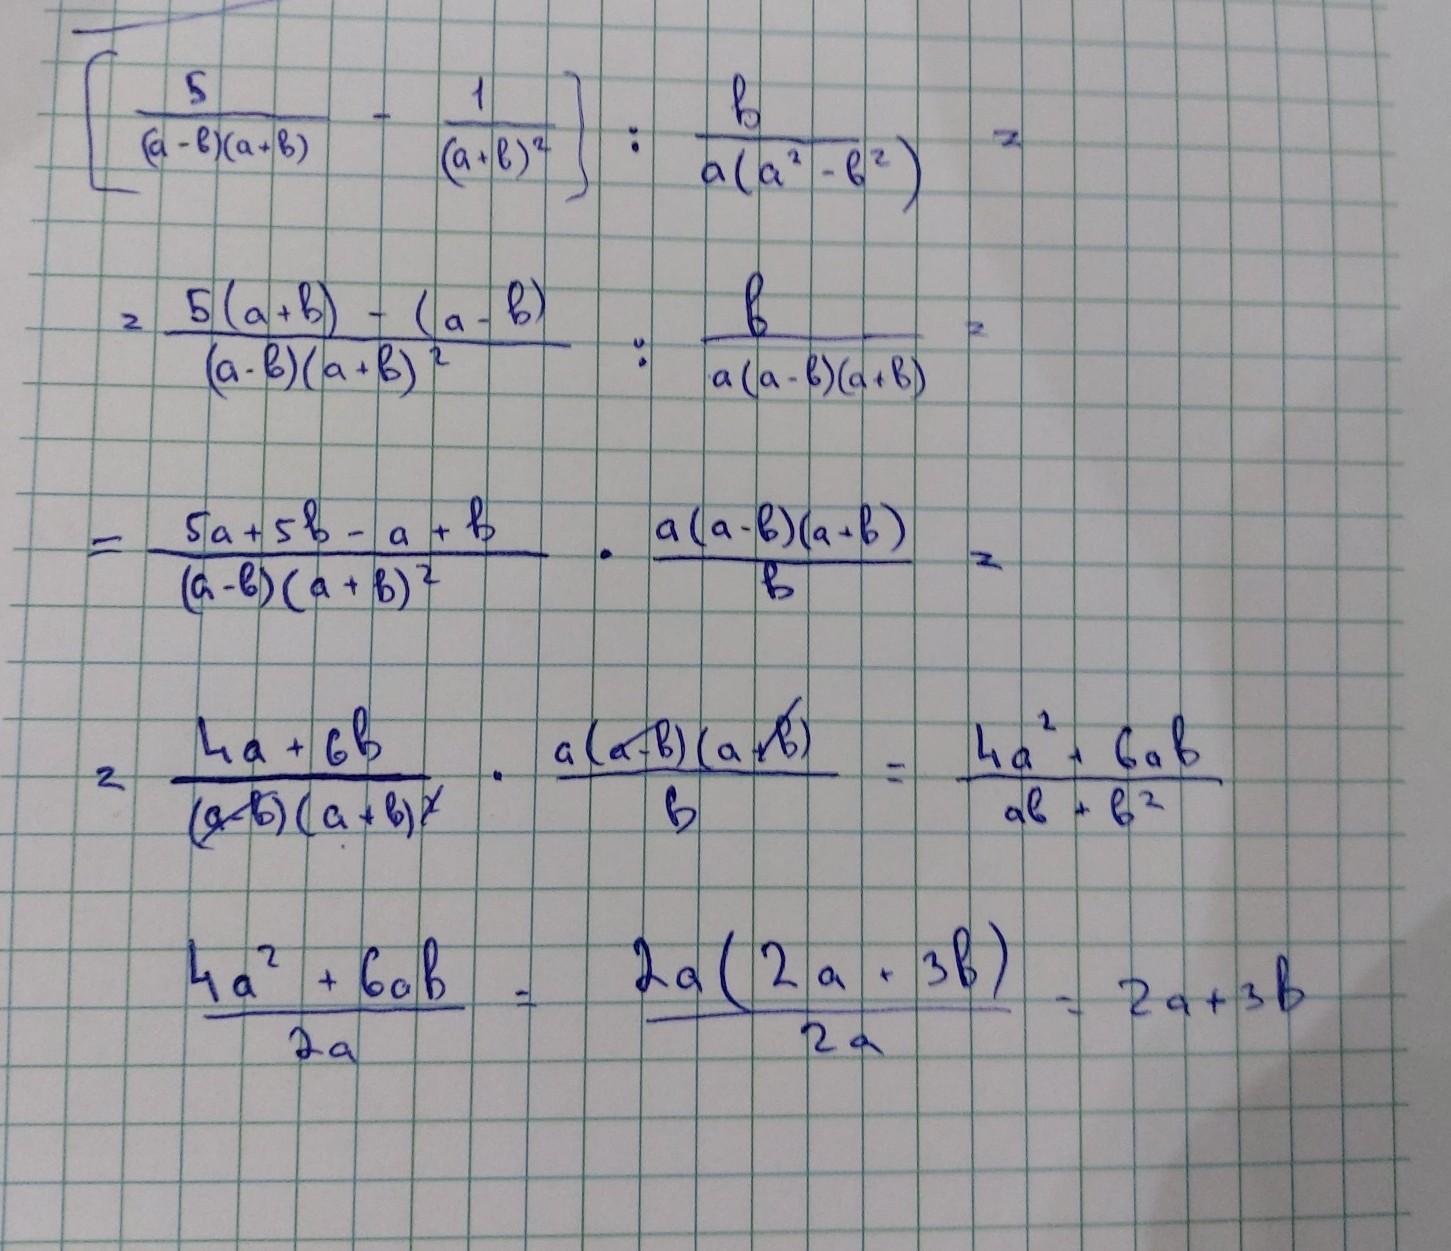 [5/((a-b)(a+b)) - 1/(a+b)²] : b/(a(a²-b²)) =
= (5(a+b) - (a-b))/((a-b)(a+b)²) : b/(a(a-b)(a+b)) =
= (5a+5b-a+b)/((a-b)(a+b)²) · (a(a-b)(a+b))/b =
= (4a+6b)/((a-b)(a+b)²) · (a(a-b)(a+b))/b = (4a²+6ab)/(ab+b²)
(4a²+6ab)/2a = (2a(2a+3b))/2a = 2a+3b